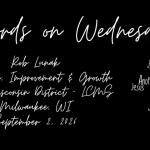 ords on Wednesd
Rob Lunak
. Improvement & Growth
isconsin District - LCMS
Milwaukee, WI
September 2, 2026
Jesus